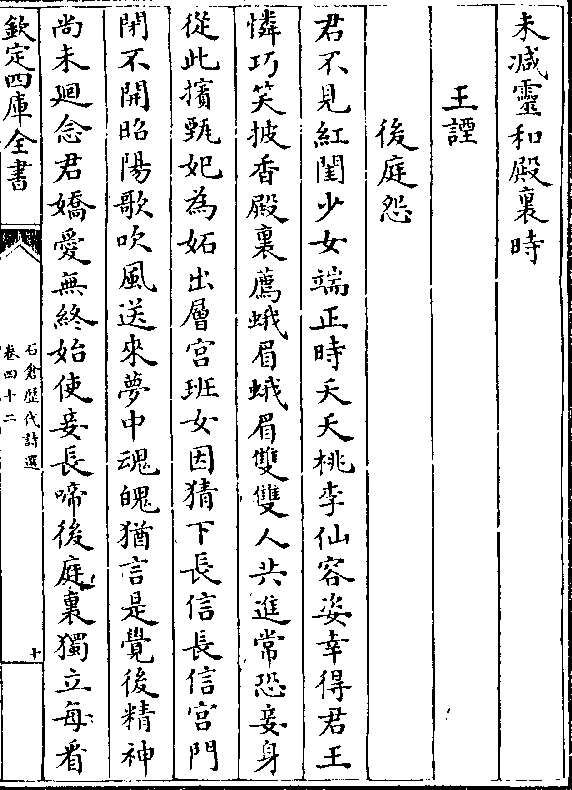 未减靈和殿裏時
王諲
後庭怨
君不見紅閨少女端正時夭夭桃李仙容姿幸得君王
憐巧笑披香殿裏薦蛾眉蛾眉雙雙人共進常恐妾身
從此擯甄妃為妬出層宫班女因猜下長信長信宫門
閉不開昭陽歌吹風送來夢中魂魄猶言是覺後精神
尚未廻念君嬌愛無終始使妾長啼後庭裏獨立每看
欽定四庫全書
石倉歴代詩選
卷四十二
十